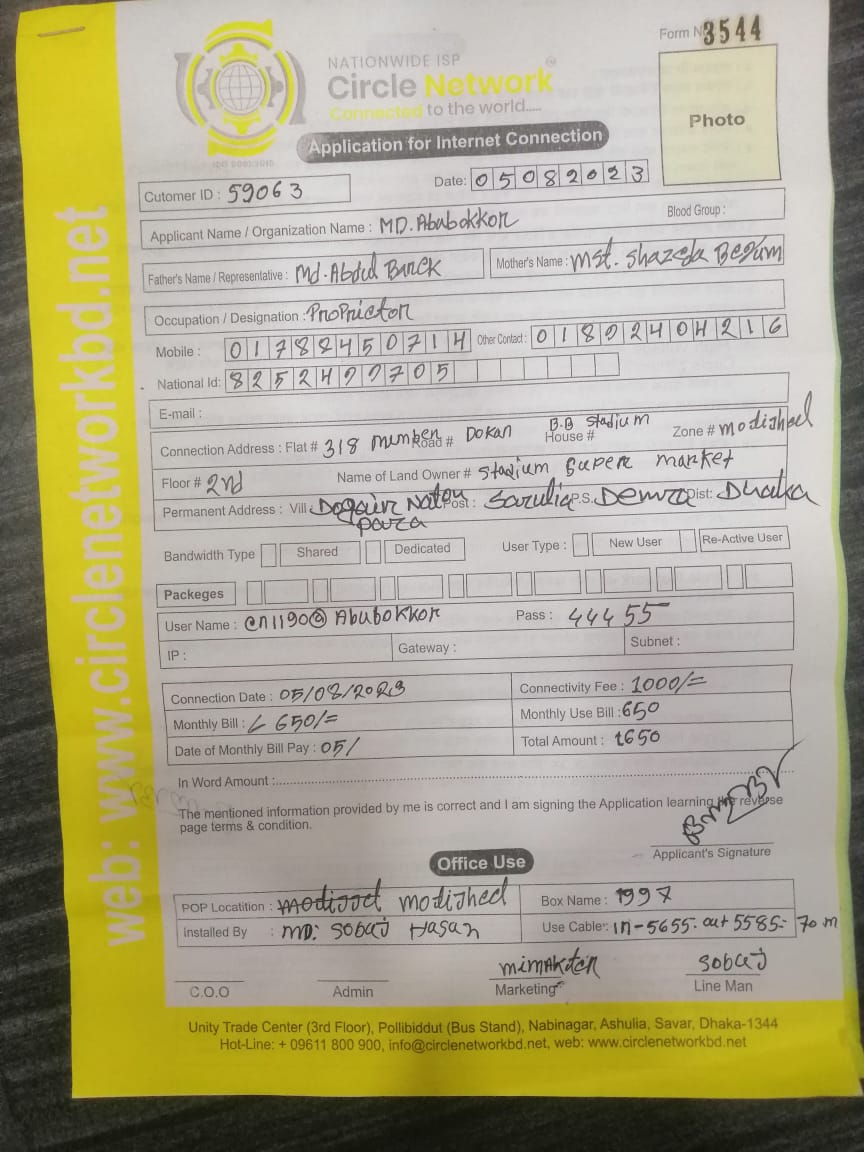 Form No 3544
NATIONWIDE ISP
Circle Network
Connected to the world.....
Application for Internet Connection
Photo
ISO 9001:2015
Date: 05082023
Cutomer ID : 59063
Applicant Name / Organization Name : MD. Ababokkor
Blood Group :
Father's Name / Representative : Md. Abdul Barek
Mother's Name : Mst. Shazeda Begum
Occupation / Designation : Proprietor
Mobile : 01788450714 Other Contact :
National Id:
E-mail :
Connection Address : Flat # 318 Road # Dokan House # B.B Stadium Zone # modijheel
Floor # 2nd Name of Land Owner # Stadium Super market
Permanent Address : Vill Dogair Natun para Post : Sarulia P.S. Demra Dist: Dhaka
Bandwidth Type Shared Dedicated User Type : New User Re-Active User
Packeges
User Name : cn1190@Abubokkor Pass : 444 55
IP : Gateway : Subnet :
Connection Date : 05/08/2023 Connectivity Fee : 1000/=
Monthly Bill : 650/= Monthly Use Bill : 650
Date of Monthly Bill Pay : 05/ Total Amount : 1650
In Word Amount :
The mentioned information provided by me is correct and I am signing the Application learning the reverse
page terms & condition.
Applicant's Signature
Office Use
POP Locatition : modijheel Box Name : 1997
Installed By : MD: Sobuj Hasan Use Cable : in-5655. out 5585= 70 m
mimAkter
Sobuj
C.O.O Admin Marketing Line Man
Unity Trade Center (3rd Floor), Pollibiddut (Bus Stand), Nabinagar, Ashulia, Savar, Dhaka-1344
Hot-Line: + 09611 800 900, info@circlenetworkbd.net, web: www.circlenetworkbd.net
web: www.circlenetworkbd.net